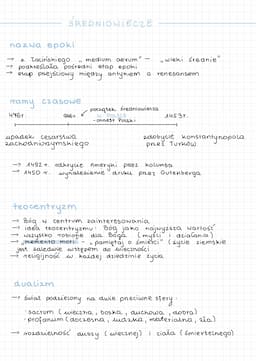 ŚREDNIOWIECZE
nazwa epoki
→ z łacińskiego „medium aevum" - „wieki średnie"
→ podkreślała pośredni etap epoki
→ etap przejściowy między antykiem a renesansem
ramy czasowe
początek średniowiecza
476r. 966r. w Polsce 1453r.
-chrzest Polski
upadek cesarstwa zdobycie konstantynopola
zachodniorzymskiego przez Turków
→ 1492 r. odkrycie Ameryki przez kolumba
→ 1450 r. wynalezienie druku przez Gutenberga
teocentryzm
→ Bóg w centrum zainteresowania
→ idea teocentryzmu: Bóg jako najwyższa wartość
→ wszystko robione dla Boga (myśli i działania)
→ „memento mori" - „pamiętaj o śmierci" (życie ziemskie
jest zaledwie wstępem do wieczności
→ religijność w każdej dziedzinie życia
dualizm
→ świat podzielony na dwie przeciwne sfery:
·sacrum (wieczna, boska, duchowa, dobra)
·profanum (doczesna, ludzka, materialna, zła)
→ rozdzielność duszy (wiecznej) i ciała (śmiertelnego)